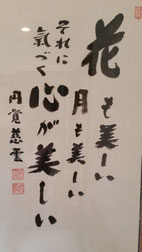 花も美しい
月も美しい
それに
氣づく
心が美しい
円覚慈雲